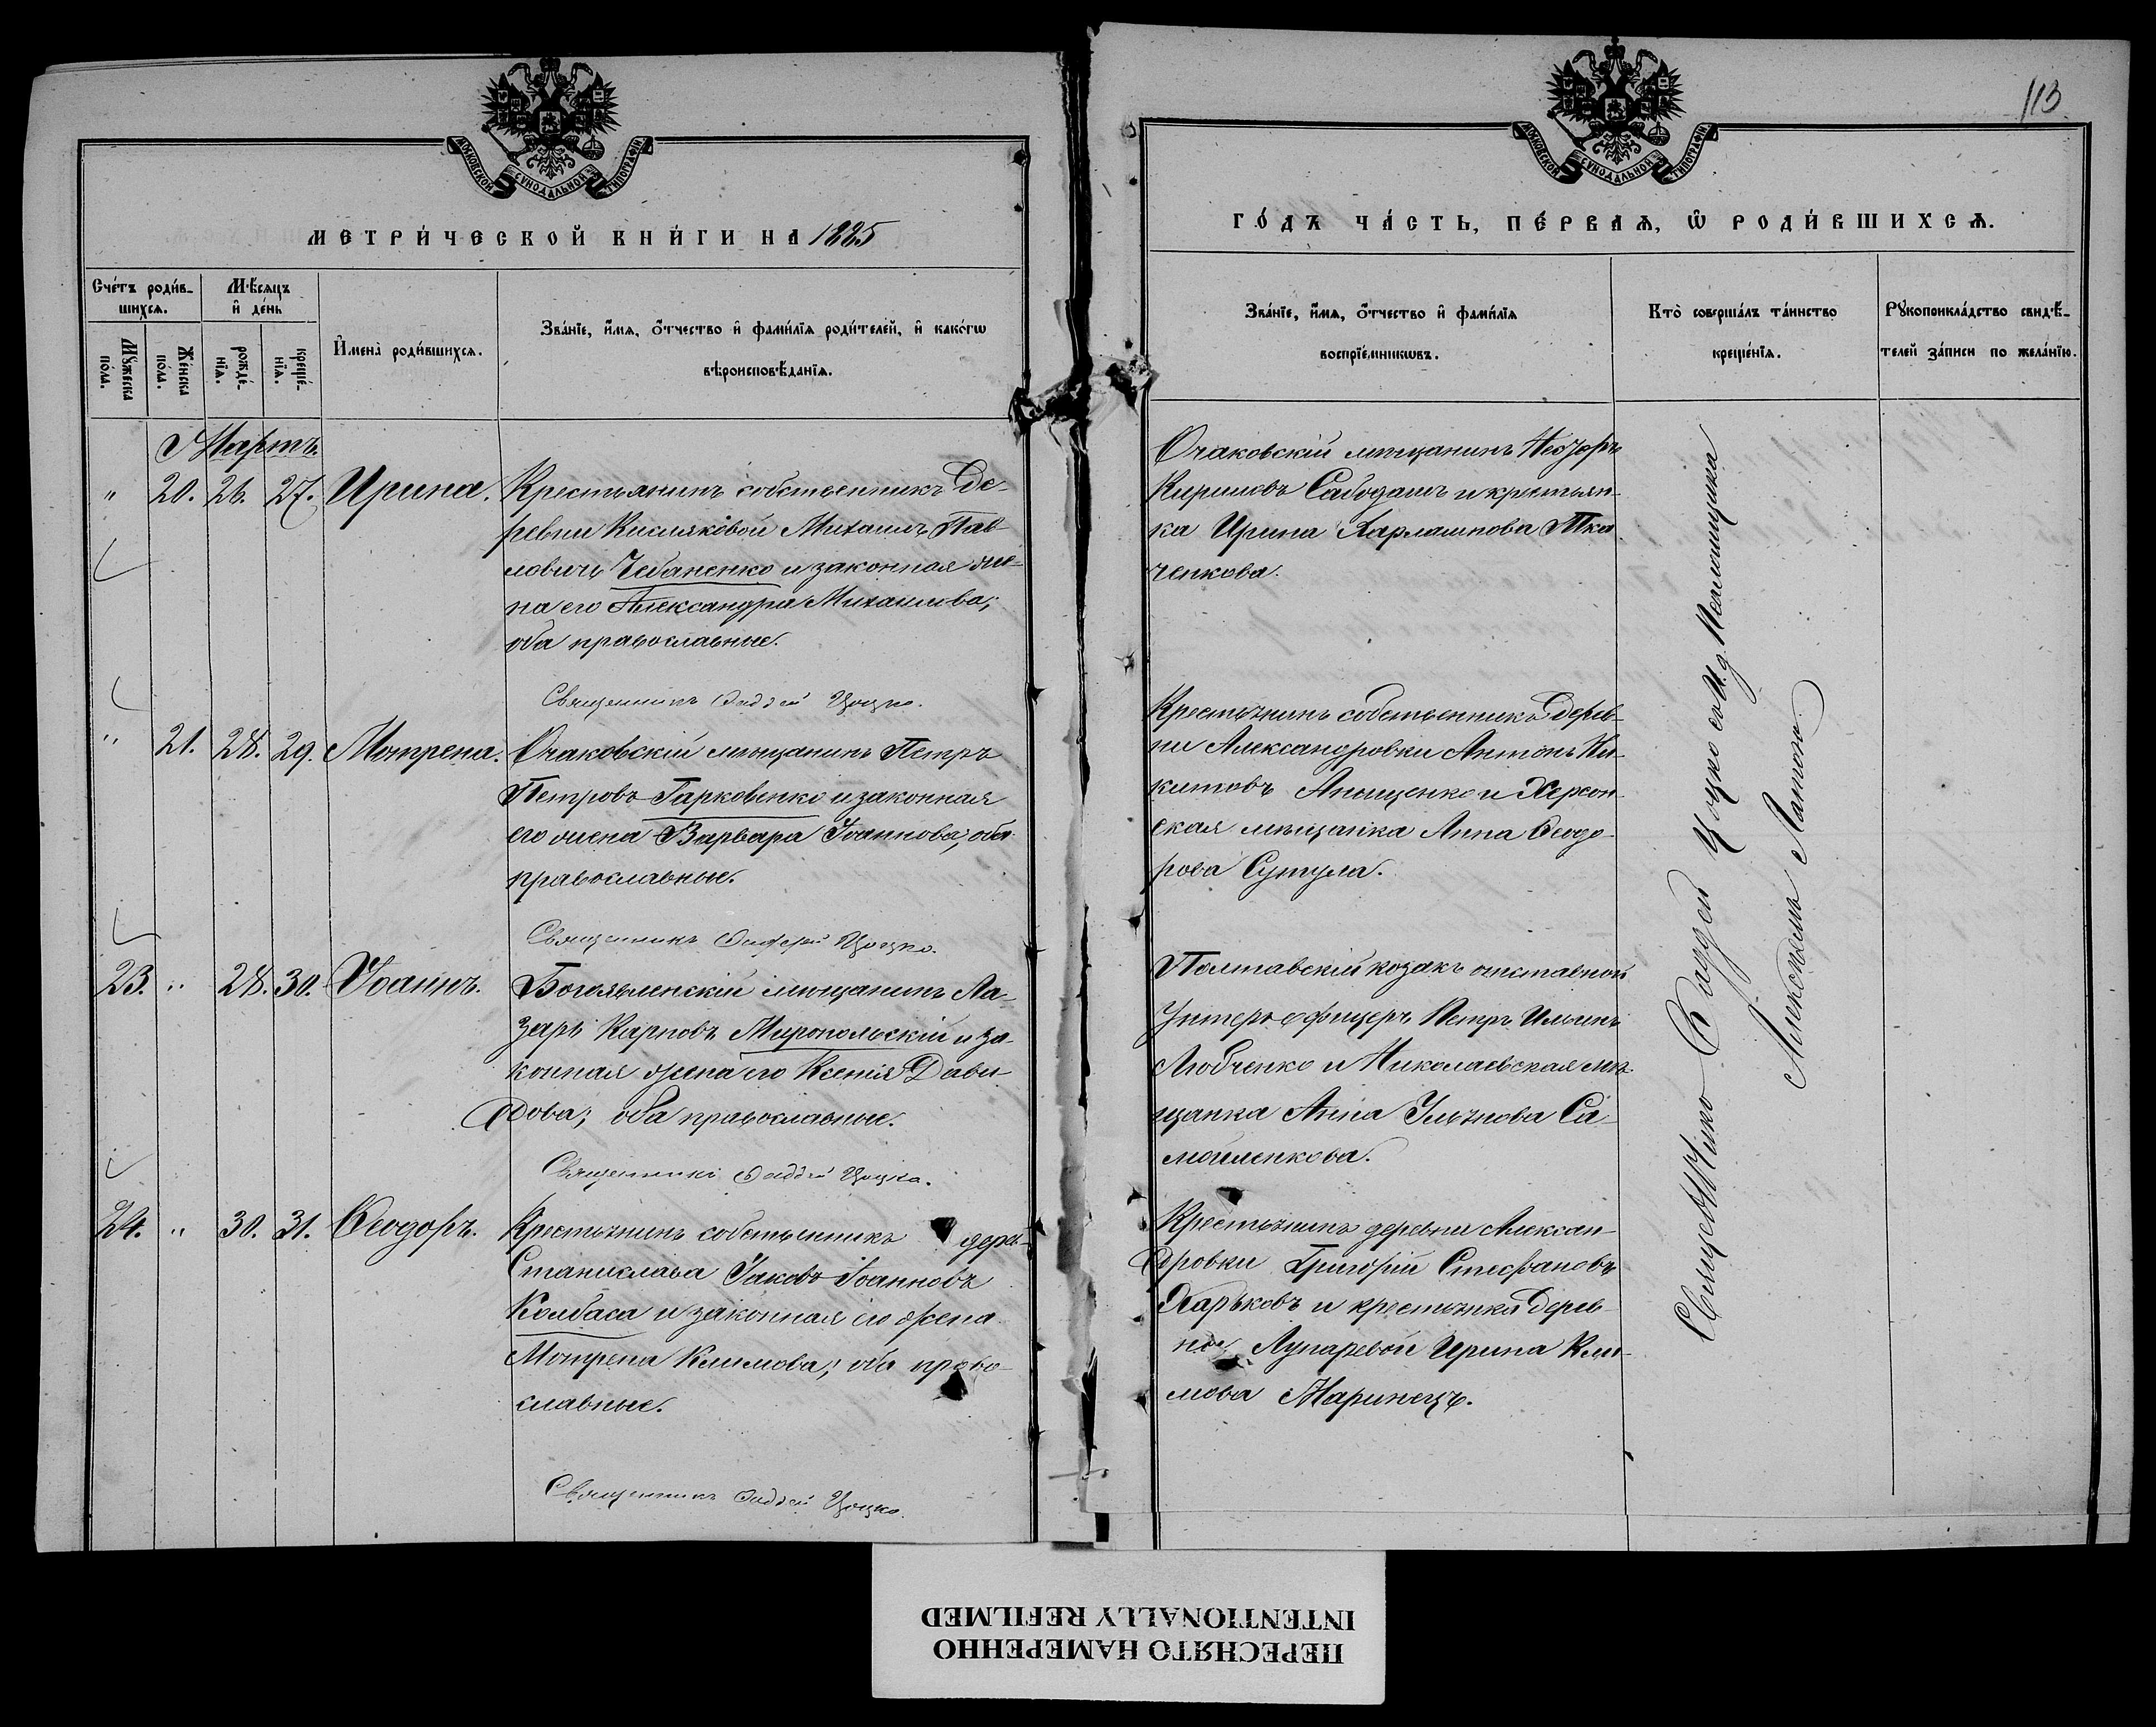 113
МОСКОВСКОЙ СУНОДАЛЬНОЙ ТИПОГРАФІИ
МЕТРИ́ЧЕСКОЙ КНИ́ГИ НА 1885
Сче́тъ роди́в-
шихсѧ.
Мѣ́сѧцъ
и҆ де́нь
Мꙋ́жеска
по́ла.
Же́нска
по́ла.
рожде́-
нїѧ.
креще́-
нїѧ.
И҆мена̀ роди́вшихсѧ.
Зва́нїе, и҆́мѧ, ѻ҆́тчество и҆ фами́лїѧ роди́телей, и҆ како́гѡ
вѣроисповѣ́данїѧ.
Мартъ.
" 20. 26. 27. Ирина.
Крестьянинъ собственникъ де-
ревни Кисляковой Михаилъ Пав
ловичъ Чебаненко и законная же-
на его Александра Михаилова;
оба православные.
Священникъ Фаддей Цоцко.
" 21. 28. 29. Мотрена.
Очаковскій мѣщанинъ Петръ
Петровъ Гарковенко и законная
его жена Варвара Іоаннова; оба
православные.
Священникъ Фаддей Цоцко.
23. " 28. 30. Іоаннъ.
Богоявленскій мѣщанинъ Ла-
зарь Карповъ Миропольскій и за-
конная жена его Ксенія Дави-
дова; оба православные.
Священникъ Фаддей Цоцко.
24. " 30. 31. Ѳеодоръ.
Крестьянинъ собственникъ дерев-
Станислава Іаковъ Іоанновъ
Колбаса и законная его жена
Мотрена Климова; оба право-
славные.
Священникъ Фаддей Цоцко.
МОСКОВСКОЙ СУНОДАЛЬНОЙ ТИПОГРАФІИ
ГО́ДЪ ЧА́СТЬ, ПЕ́РВАѦ, Ѿ РОДИ́ВШИХСѦ.
Зва́нїе, и҆́мѧ, ѻ҆́тчество и҆ фами́лїѧ
воспрїе́мникѡвъ.
Кто̀ соверша́лъ та́инство
креще́нїѧ.
Рꙋкоприкла́дство свидѣ́-
телей за́писи по жела́нїю.
Очаковскій мѣщанинъ Ѳеодоръ
Кириловъ Сабодашъ и крестьян-
ка Ирина Харлампова Тка
ченкова.
Крестьянинъ собственникъ дерев-
ни Александровки Антонъ Ни-
китовъ Анищенко и Херсон-
ская мѣщанка Анна Ѳеодо-
рова Сутула.
Полтавскій козакъ отставной
Унтеръ-офицеръ Петръ Ильинъ
Любченко и Николаевская мѣ-
щанка Анна Ульянова Са-
мойленкова.
Крестьянинъ деревни Алексан-
дровки Григорій Стефановъ
Харьковъ и крестьянка дерев-
ни Лупаревой Ирина Кли-
мова Маринецъ.
Фаддей Цоцко со И. д. Псаломщика
ПЕРЕСНЯТО НАМЕРЕННО
INTENTIONALLY REFILMED